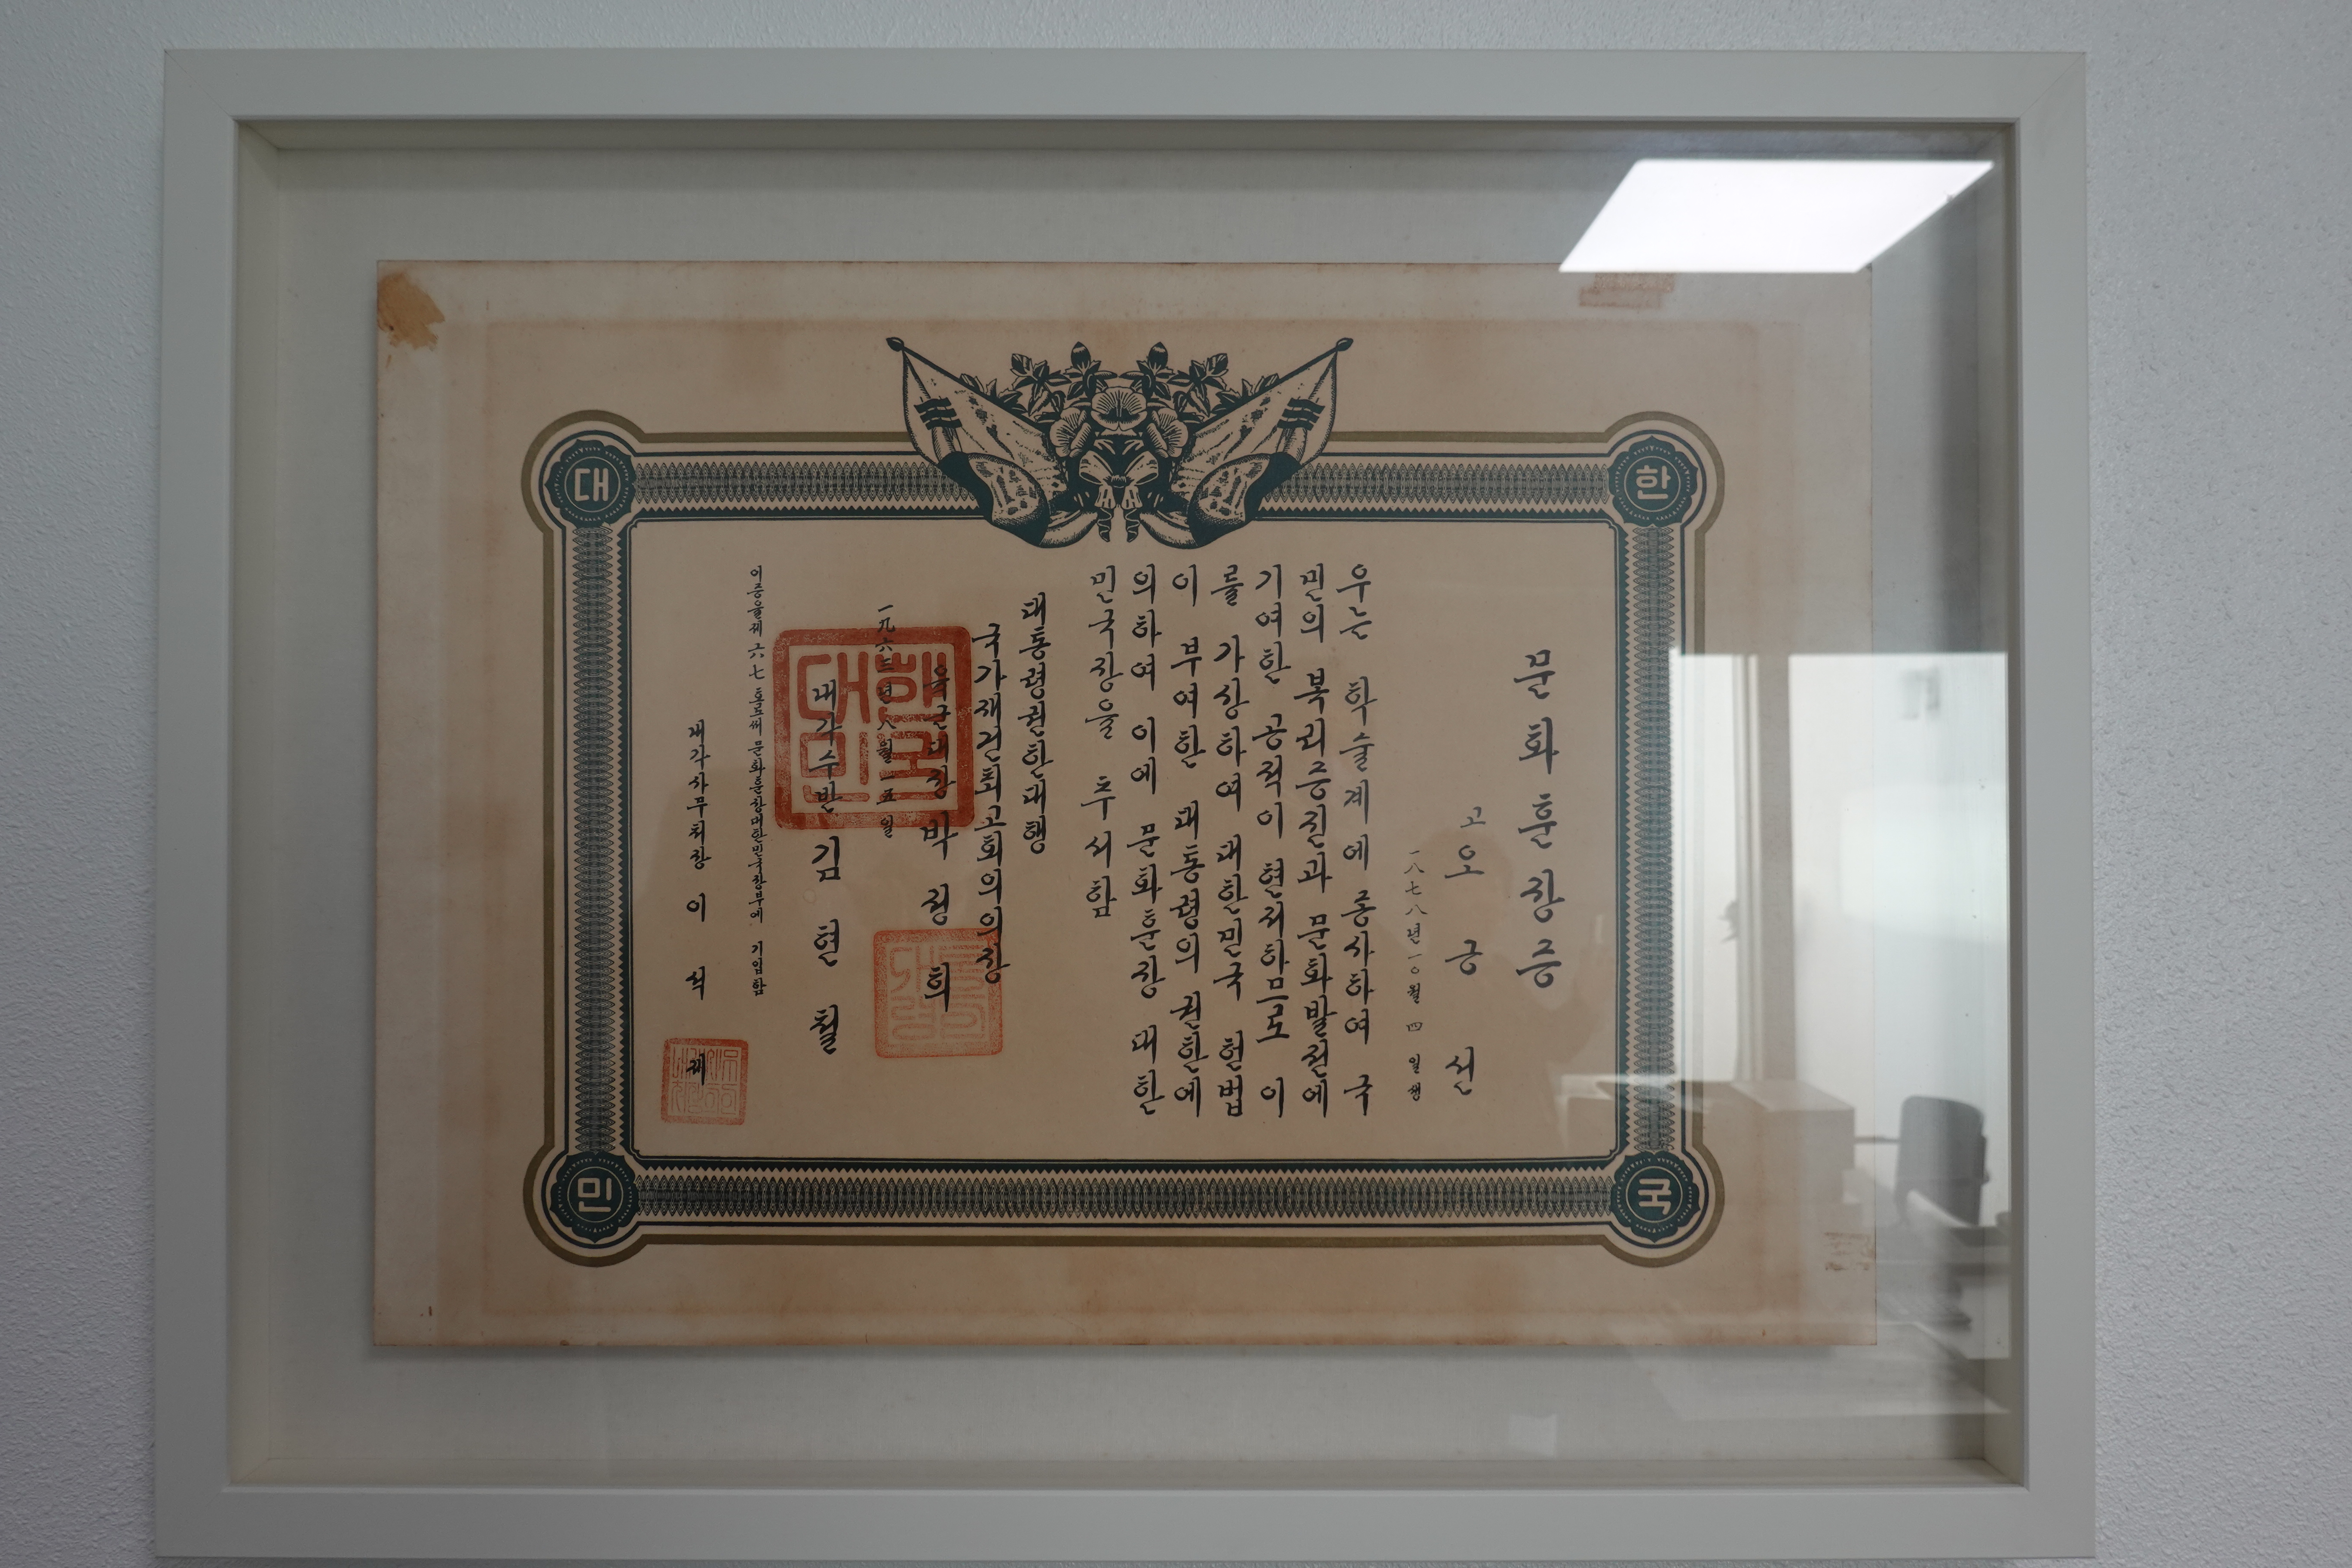 대
한
민
국
문화훈장증
고 오긍선
一八七八년 一○월 四일생
우는 학술계에 종사하여 국
민의 복리증진과 문화발전에
기여한 공적이 현저하므로 이
를 가상하여 대한민국 헌법
이 부여한 대통령의 권한에
의하여 이에 문화훈장 대한
민국장을 추서함
대통령권한대행
국가재건최고회의의장
육군대장 박정희
一九六三년 八월 一五일
내각수반 김현철
이증을제 六七호로써 문화훈장대한민국장부에 기입함
내각사무처장 이석제
대한민국